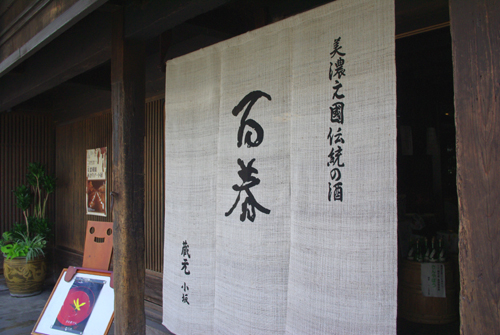 美濃之國伝統の酒
百春
蔵元 小坂